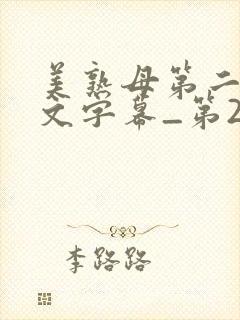 美熟母第二
文字幕_第2
李路路